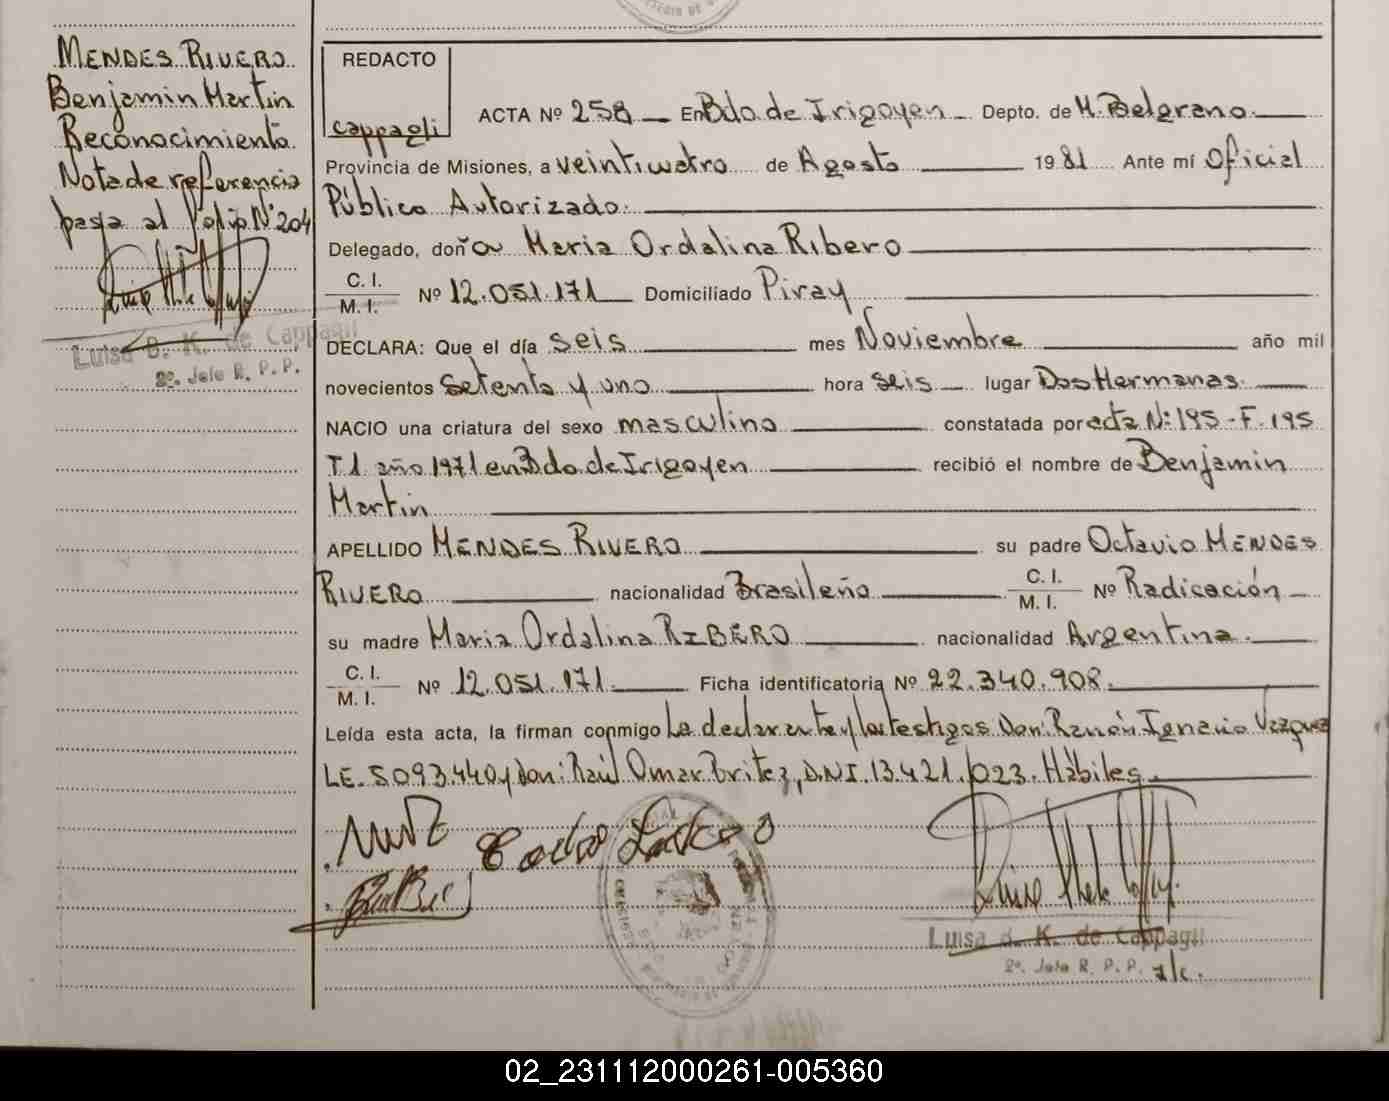 MENDES RIVERO
Benjamin Martin
Reconocimiento
Nota de referencia
pasa al folio Nº 204
Luisa B. K. de Cappagli
2º. Jefe R. P. P.
REDACTO
cappagli
ACTA Nº 258 En Bdo. de Irigoyen Depto. de M. Belgrano
Provincia de Misiones, a veinticuatro de Agosto 1981 Ante mí Oficial
Público Autorizado.
Delegado, doña Maria Ordalina Ribero
C. I.
M. I. Nº 12.051.171 Domiciliado Piray
DECLARA: Que el día seis mes Noviembre año mil
novecientos setenta y uno hora seis lugar Dos Hermanas.
NACIO una criatura del sexo masculino constatada por acta Nº 195 - F. 195
T 1 año 1971 en Bdo. de Irigoyen recibió el nombre de Benjamin
Martin
APELLIDO MENDES RIVERO su padre Octavio MENDES
RIVERO nacionalidad Brasileña C. I.
M. I. Nº Radicación
su madre Maria Ordalina RIBERO nacionalidad Argentina.
C. I.
M. I. Nº 12.051.171. Ficha identificatoria Nº 22.340.908.
Leída esta acta, la firman conmigo La declarante y los testigos Don: Ramón Ignacio Vazquez
LE. 5093.440 y don: Raúl Omar Britez, D.N.I. 13.421.023. Hábiles
Luisa B. K. de Cappagli
2º. Jefe R. P. P. a/c.
02_231112000261-005360